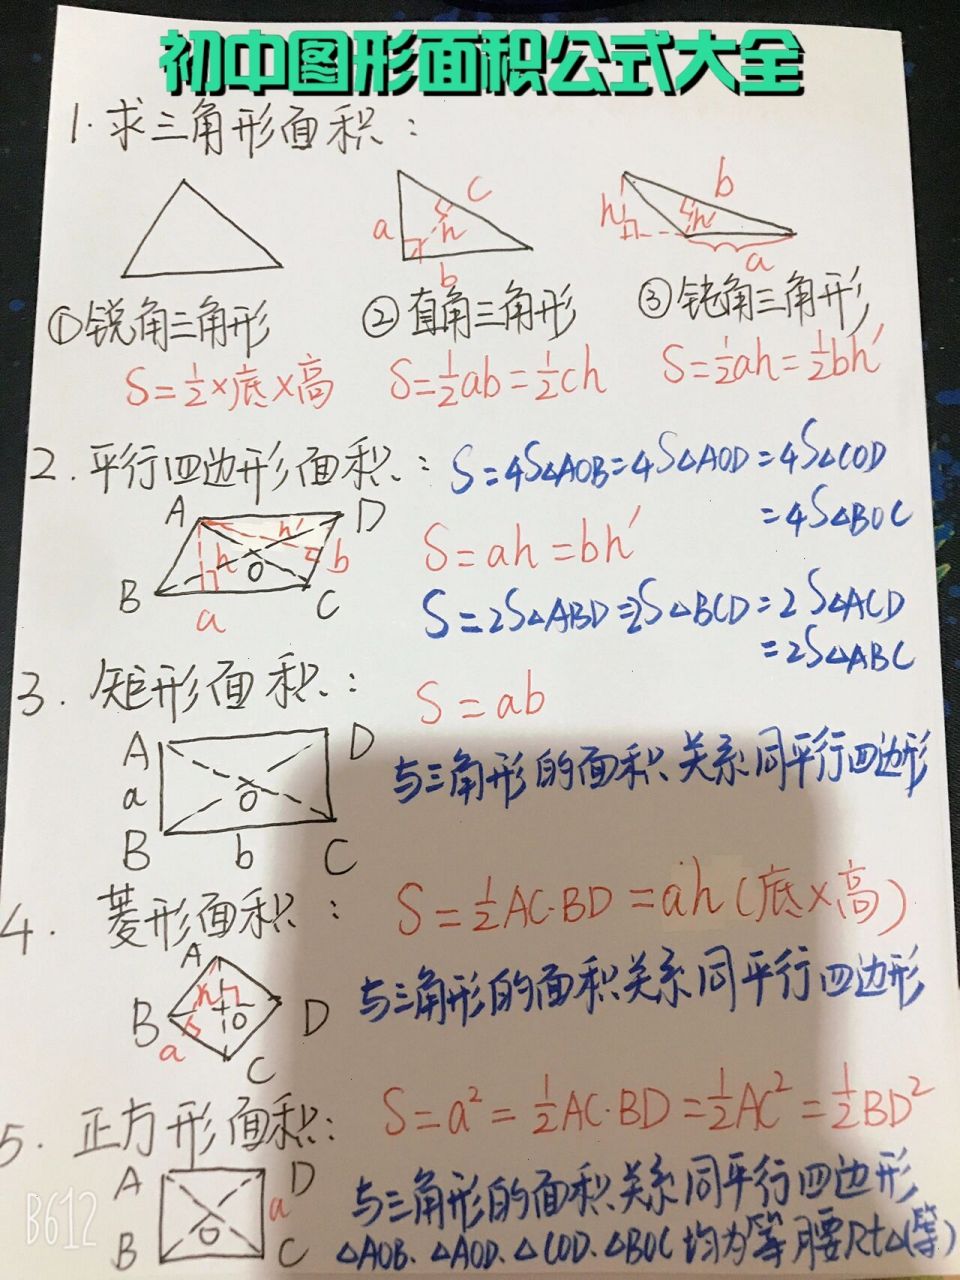 初中图形面积公式大全
1.求三角形面积：
a c h b
h h' b a
①锐角三角形 ②直角三角形 ③钝角三角形
S=½×底×高 S=½ab=½ch S=½ah=½bh'
2.平行四边形面积：
S=4S△AOB=4S△AOD=4S△COD
=4S△BOC
A D h' h b O B C a
S=ah=bh'
S=2S△ABD=2S△BCD=2S△ACD
=2S△ABC
3.矩形面积：
S=ab
A D a O B b C
与三角形的面积关系同平行四边形
4.菱形面积：
S=½AC·BD=ah(底×高)
A h B O D a C
与三角形的面积关系同平行四边形
5.正方形面积：
S=a²=½AC·BD=½AC²=½BD²
A D a O B C
与三角形的面积关系同平行四边形
△AOB.△AOD.△COD.△BOC均为等腰Rt△(等)
B612